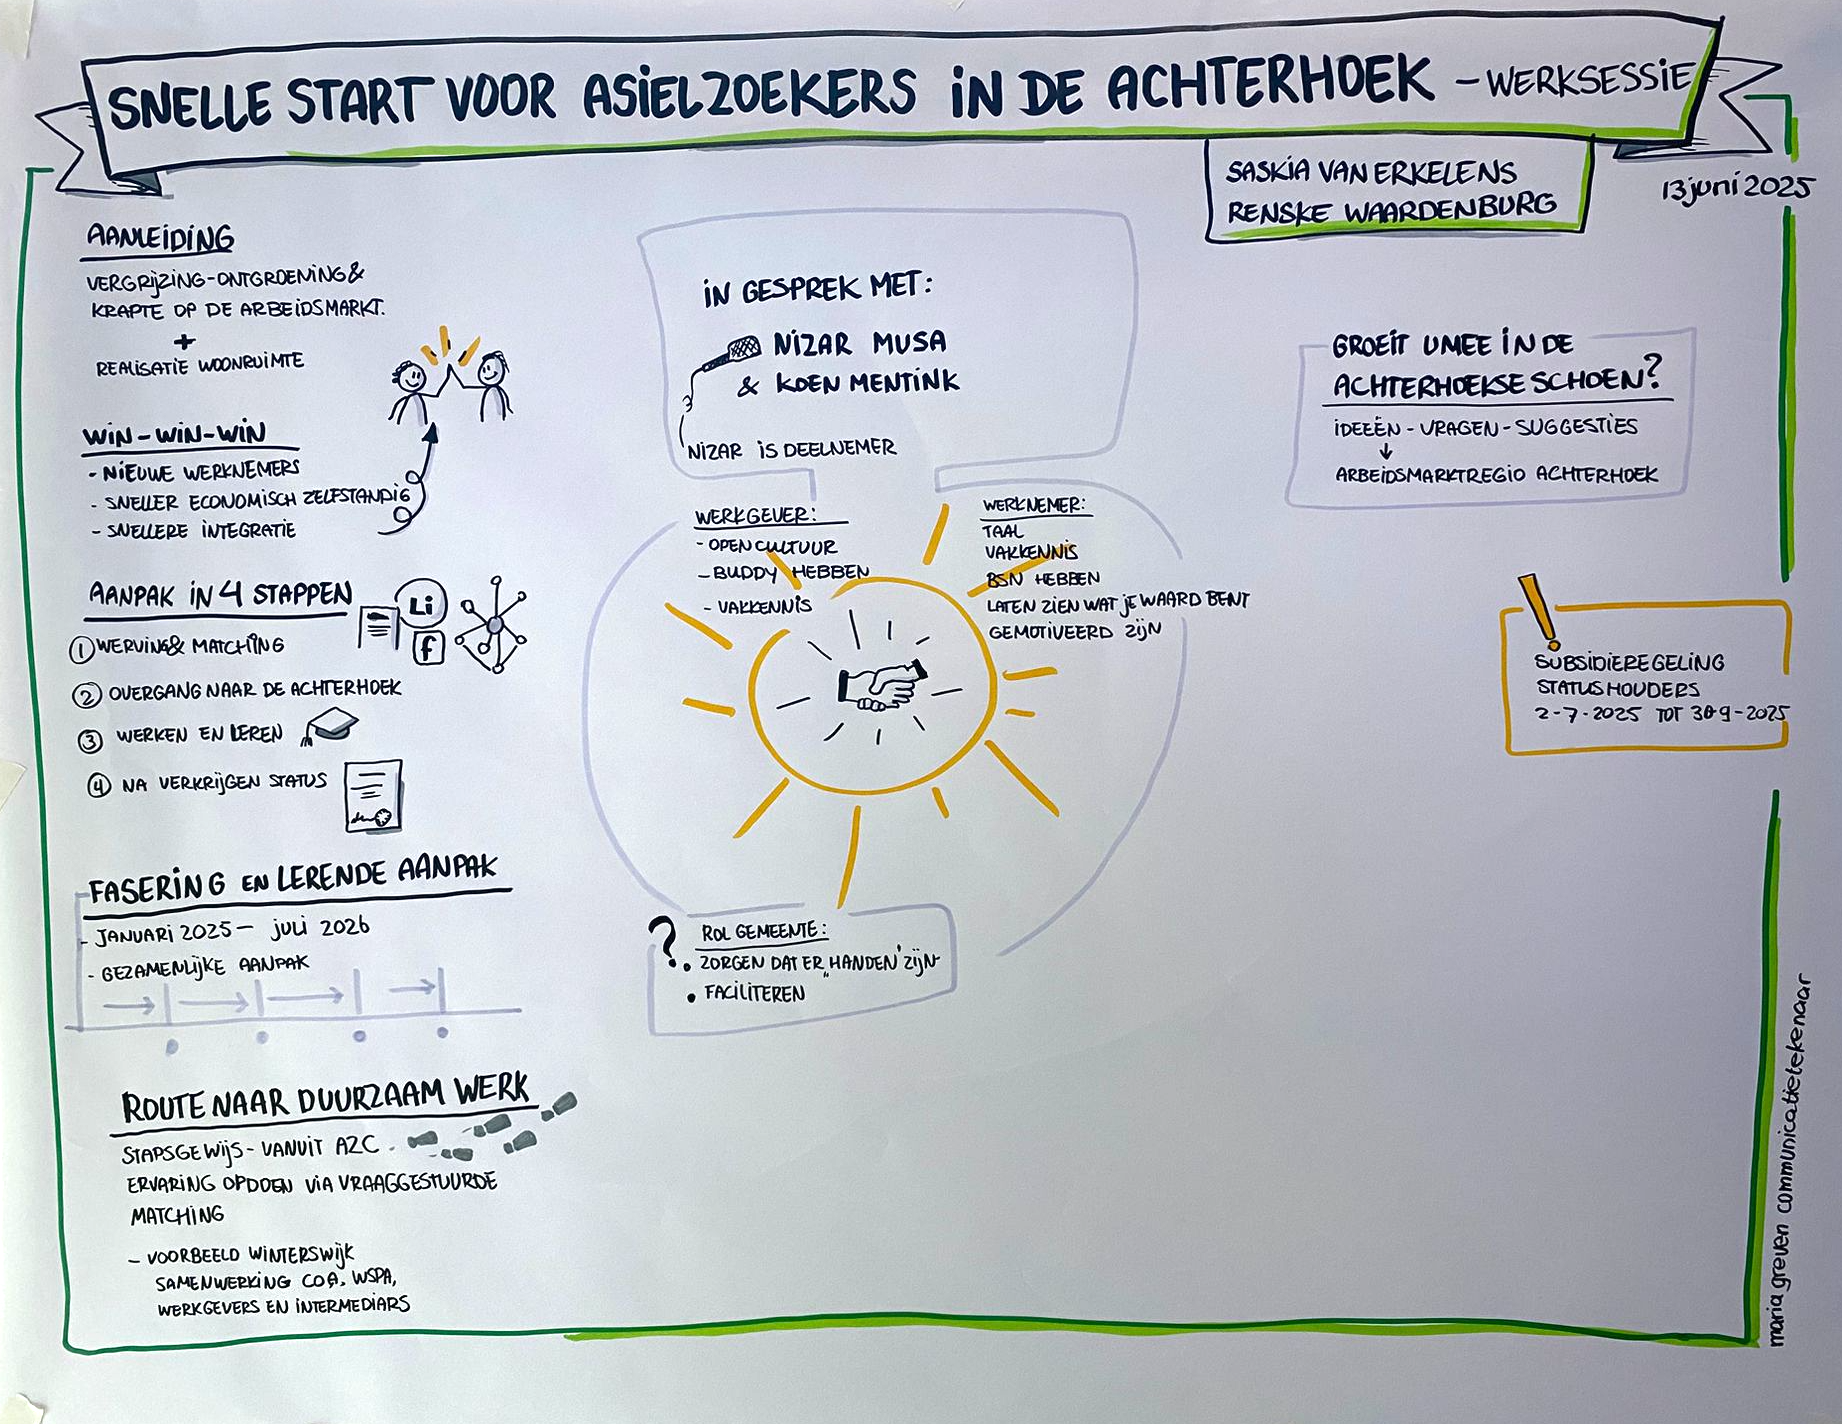 SNELLE START VOOR ASIELZOEKERS IN DE ACHTERHOEK - WERKSESSIE
SASKIA VAN ERKELENS
RENSKE WAARDENBURG
13 juni 2025
AANLEIDING
VERGRIJZING-ONTGROENING &
KRAPTE OP DE ARBEIDSMARKT.
+
REALISATIE WOONRUIMTE
WIN-WIN-WIN
- NIEUWE WERKNEMERS
- SNELLER ECONOMISCH ZELFSTANDIG
- SNELLERE INTEGRATIE
AANPAK IN 4 STAPPEN
Li
f
1 WERVING & MATCHING
2 OVERGANG NAAR DE ACHTERHOEK
3 WERKEN EN LEREN
4 NA VERKRIJGEN STATUS
FASERING EN LERENDE AANPAK
- JANUARI 2025 - juli 2026
- GEZAMENLIJKE AANPAK
ROUTE NAAR DUURZAAM WERK
STAPSGEWIJS - VANUIT AZC
ERVARING OPDOEN VIA VRAAGGESTUURDE
MATCHING
- VOORBEELD WINTERSWIJK
SAMENWERKING COA, WSPA,
WERKGEVERS EN INTERMEDIARS
IN GESPREK MET:
NIZAR MUSA
& KOEN MENTINK
NIZAR IS DEELNEMER
WERKGEVER:
- OPEN CULTUUR
- BUDDY HEBBEN
- VAKKENNIS
WERKNEMER:
TAAL
VAKKENNIS
BSN HEBBEN
LATEN ZIEN WAT JE WAARD BENT
GEMOTIVEERD ZIJN
? ROL GEMEENTE:
• ZORGEN DAT ER „HANDEN' ZIJN
• FACILITEREN
GROEIT U MEE IN DE
ACHTERHOEKSE SCHOEN?
IDEEËN - VRAGEN - SUGGESTIES
↓
ARBEIDSMARKTREGIO ACHTERHOEK
!
SUBSIDIEREGELING
STATUSHOUDERS
2-7-2025 TOT 30-9-2025
maria greven communicatietekenaar